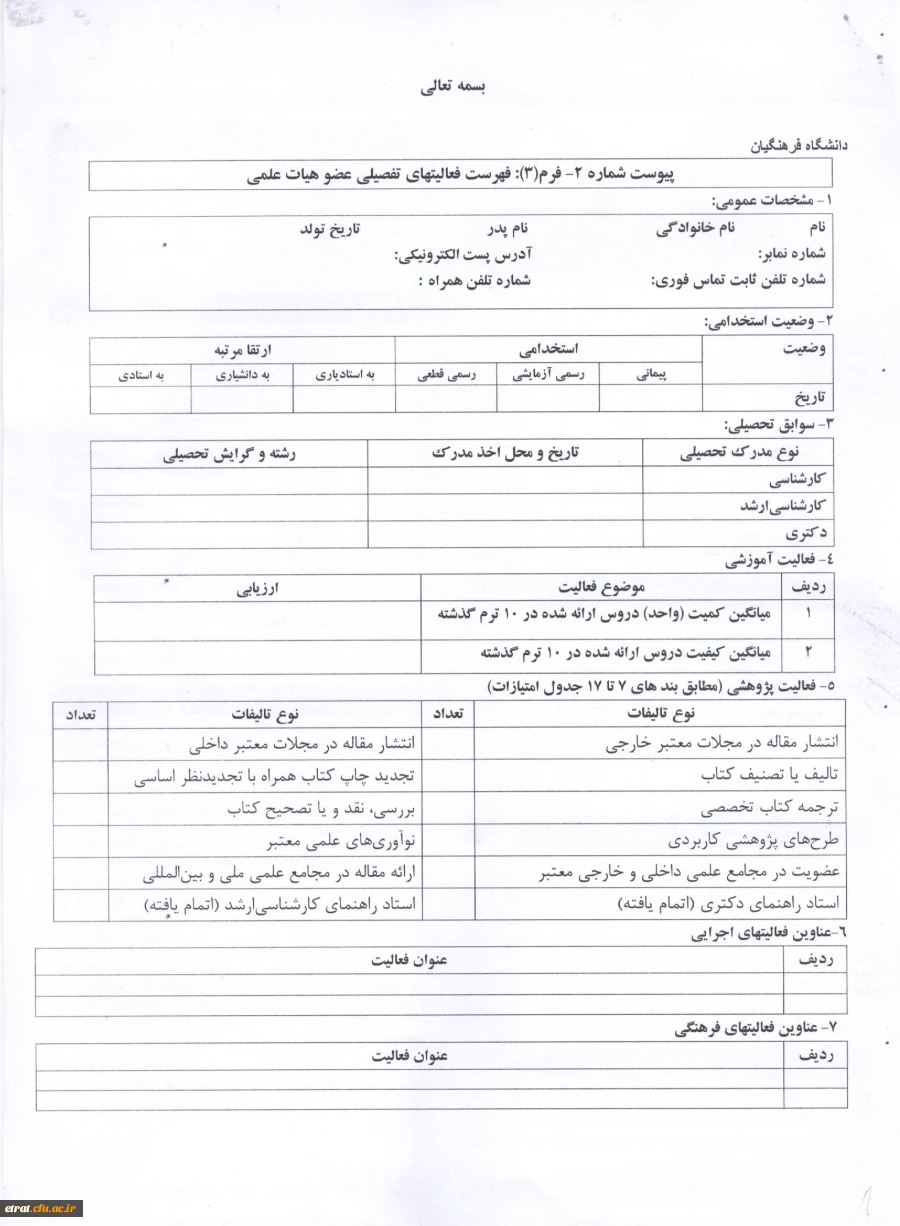 بسمه تعالی
دانشگاه فرهنگیان
پیوست شماره ۲- فرم(۳): فهرست فعالیتهای تفصیلی عضو هیات علمی
۱- مشخصات عمومی:
نام نام خانوادگی نام پدر تاریخ تولد
شماره نمابر: آدرس پست الکترونیکی:
شماره تلفن ثابت تماس فوری: شماره تلفن همراه :
۲- وضعیت استخدامی:
وضعیت استخدامی ارتقا مرتبه
پیمانی رسمی آزمایشی رسمی قطعی به استادیاری به دانشیاری به استادی
تاریخ
۳- سوابق تحصیلی:
نوع مدرک تحصیلی تاریخ و محل اخذ مدرک رشته و گرایش تحصیلی
کارشناسی
کارشناسی‌ارشد
دکتری
٤- فعالیت آموزشی
ردیف موضوع فعالیت ارزیابی
۱ میانگین کمیت (واحد) دروس ارائه شده در ۱۰ ترم گذشته
۲ میانگین کیفیت دروس ارائه شده در ۱۰ ترم گذشته
۵- فعالیت پژوهشی (مطابق بند های ۷ تا ۱۷ جدول امتیازات)
نوع تالیفات تعداد نوع تالیفات تعداد
انتشار مقاله در مجلات معتبر خارجی انتشار مقاله در مجلات معتبر داخلی
تالیف یا تصنیف کتاب تجدید چاپ کتاب همراه با تجدیدنظر اساسی
ترجمه کتاب تخصصی بررسی، نقد و یا تصحیح کتاب
طرح‌های پژوهشی کاربردی نوآوری‌های علمی معتبر
عضویت در مجامع علمی داخلی و خارجی معتبر ارائه مقاله در مجامع علمی ملی و بین‌المللی
استاد راهنمای دکتری (اتمام یافته) استاد راهنمای کارشناسی‌ارشد (اتمام یافته)
۶-عناوین فعالیتهای اجرایی
ردیف عنوان فعالیت
۷- عناوین فعالیتهای فرهنگی
ردیف عنوان فعالیت
۱
etrat.cfu.ac.ir